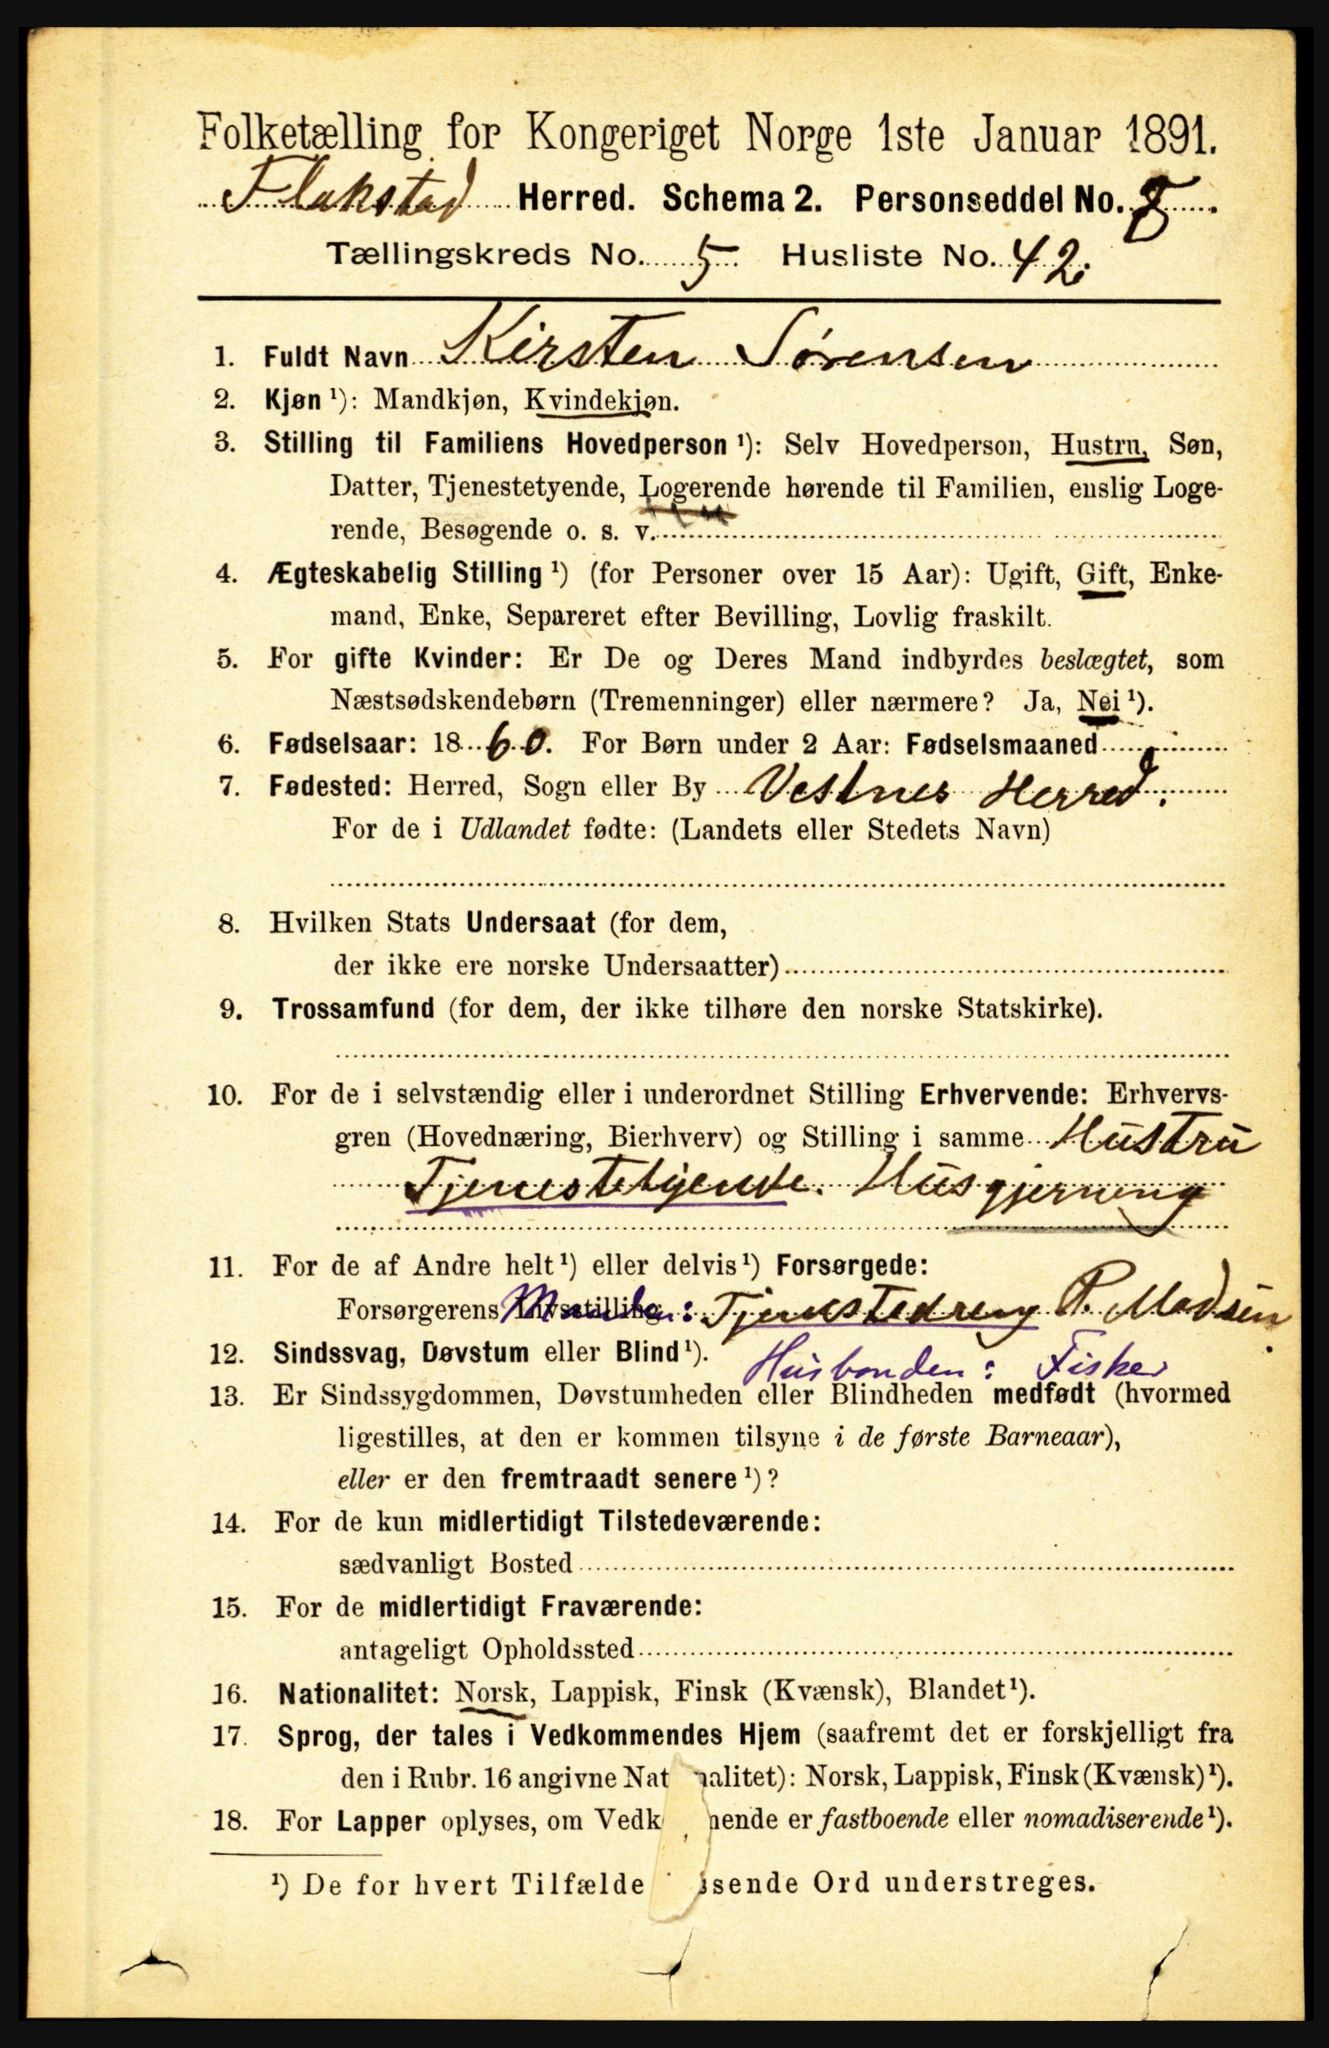 Folketælling for Kongeriget Norge 1ste Januar 1891.
Flakstad Herred. Schema 2. Personseddel No. 8.
Tællingskreds No. 5. Husliste No. 42.
1. Fuldt Navn Kirsten Sørensen
2. Kjøn ¹): Mandkjøn, Kvindekjøn.
3. Stilling til Familiens Hovedperson ¹): Selv Hovedperson, Hustru, Søn,
Datter, Tjenestetyende, Logerende hørende til Familien, enslig Loge-
rende, Besøgende o. s. v.
4. Ægteskabelig Stilling ¹) (for Personer over 15 Aar): Ugift, Gift, Enke-
mand, Enke, Separeret efter Bevilling, Lovlig fraskilt.
5. For gifte Kvinder: Er De og Deres Mand indbyrdes beslægtet, som
Næstsødskendebørn (Tremenninger) eller nærmere? Ja, Nei ¹).
6. Fødselsaar: 1860. For Børn under 2 Aar: Fødselsmaaned
7. Fødested: Herred, Sogn eller By Vestnes Herred.
For de i Udlandet fødte: (Landets eller Stedets Navn)
8. Hvilken Stats Undersaat (for dem,
der ikke ere norske Undersaatter)
9. Trossamfund (for dem, der ikke tilhøre den norske Statskirke).
10. For de i selvstændig eller i underordnet Stilling Erhvervende: Erhvervs-
gren (Hovednæring, Bierhverv) og Stilling i samme Hustru
Tjenestetyende. Husgjerning
11. For de af Andre helt ¹) eller delvis ¹) Forsørgede:
Forsørgerens Livsstilling Tjenestedreng P. Madsen
12. Sindssvag, Døvstum eller Blind ¹). Husbonden: Fisker
13. Er Sindssygdommen, Døvstumheden eller Blindheden medfødt (hvormed
ligestilles, at den er kommen tilsyne i de første Barneaar),
eller er den fremtraadt senere ¹)?
14. For de kun midlertidigt Tilstedeværende:
sædvanligt Bosted
15. For de midlertidigt Fraværende:
antageligt Opholdssted
16. Nationalitet: Norsk, Lappisk, Finsk (Kvænsk), Blandet ¹).
17. Sprog, der tales i Vedkommendes Hjem (saafremt det er forskjelligt fra
den i Rubr. 16 angivne Nat nalitet): Norsk, Lappisk, Finsk (Kvænsk) ¹).
18. For Lapper oplyses, om Vedk nende er fastboende eller nomadiserende ¹).
¹) De for hvert Tilfælde ssende Ord understreges.